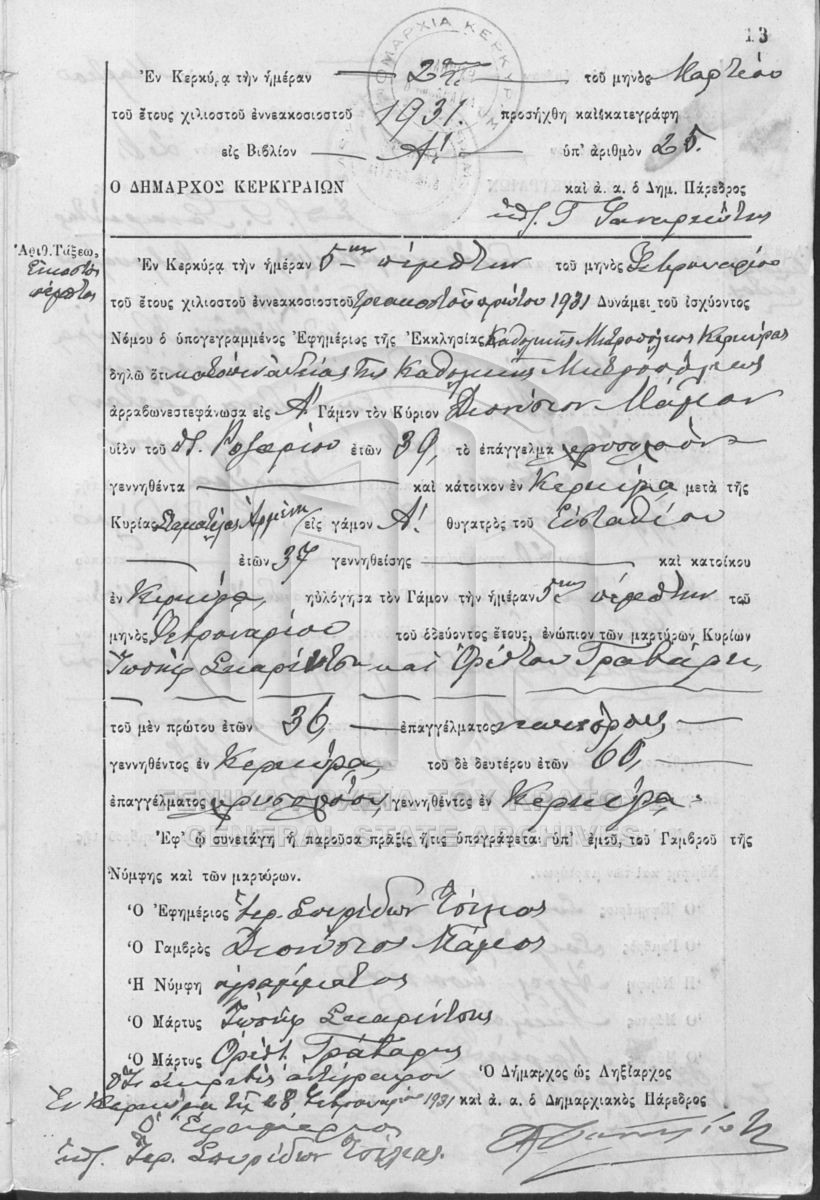 13
ΔΗΜΑΡΧΙΑ ΚΕΡΚΥΡΑΙΩΝ
Ἐν Κερκύρᾳ τὴν ἡμέραν 2αν τοῦ μηνὸς Μαρτίου
τοῦ ἔτους χιλιοστοῦ ἐννεακοσιοστοῦ 1931. προσήχθη καὶ κατεγράφη
εἰς Βιβλίον Α! ὑπ' ἀριθμὸν 25.
Ο ΔΗΜΑΡΧΟΣ ΚΕΡΚΥΡΑΙΩΝ καὶ ἀ. α. ὁ Δημ. Πάρεδρος
Ἀριθ. Τάξεω,
Εἰκοστὸς
πέμπτος
Ἐν Κερκύρᾳ τὴν ἡμέραν 5ην πέμπτην τοῦ μηνὸς Φεβρουαρίου
τοῦ ἔτους χιλιοστοῦ ἐννεακοσιοστοῦ τριακοστοῦ πρώτου 1931 Δυνάμει τοῦ ἰσχύοντος
Νόμου ὁ ὑπογεγραμμένος Ἐφημέριος τῆς Ἐκκλησίας Καθολικῆς Μητροπόλεως Κερκύρας
δηλῶ ὅτι κατόπιν ἀδείας τῆς Καθολικῆς Μητροπόλεως
ἀρραβωνεστεφάνωσα εἰς Α' Γάμον τὸν Κύριον Διονύσιον
υἱὸν τοῦ Ροζαρίου ἐτῶν 39, τὸ ἐπάγγελμα χρυσοχόον
γεννηθέντα καὶ κάτοικον ἐν Κερκύρᾳ μετὰ τῆς
Κυρίας Σταματέλας Ἀρμένη εἰς γάμον Α! θυγατρὸς τοῦ Εὐσταθίου
ἐτῶν 37 γεννηθείσης καὶ κατοίκου
ἐν Κερκύρᾳ, ηὐλόγησα τὸν Γάμον τὴν ἡμέραν 5ην πέμπτην τοῦ
μηνὸς Φεβρουαρίου τοῦ ὁδεύοντος ἔτους, ἐνώπιον τῶν μαρτύρων Κυρίων
Ἰωσὴφ Σκαρίντση καὶ Ὀρέστου Γραβάρη,
τοῦ μὲν πρώτου ἐτῶν 36, ἐπαγγέλματος
γεννηθέντος ἐν Κερκύρᾳ τοῦ δὲ δευτέρου ἐτῶν 60,
ἐπαγγέλματος χρυσοχόου, γεννηθέντος ἐν Κερκύρᾳ.
GENERAL STATE ARCHIVES
Ἐφ' ᾧ συνετάγη ἡ παροῦσα πρᾶξις ἥτις ὑπογράφεται ὑπ' ἐμοῦ, τοῦ Γαμβροῦ τῆς
Νύμφης καὶ τῶν μαρτύρων.
Ὁ Ἐφημέριος Ἱερ. Σπυρίδων Τσίλιας
Ὁ Γαμβρὸς Διονύσιος
Ἡ Νύμφη ἀγράμματος
Ὁ Μάρτυς Ἰωσὴφ Σκαρίντσης
Ὁ Μάρτυς Ὀρέστ. Γραβάρης
Ὅτι ἀκριβὲς ἀντίγραφον Ὁ Δήμαρχος ὡς Ληξίαρχος
Ἐν Κερκύρᾳ τῇ 28 Φεβρουαρίου 1931 καὶ ἀ. α. ὁ Δημαρχιακὸς Πάρεδρος
Ὁ Ἐφημέριος
Ἱερ. Σπυρίδων Τσίλιας.